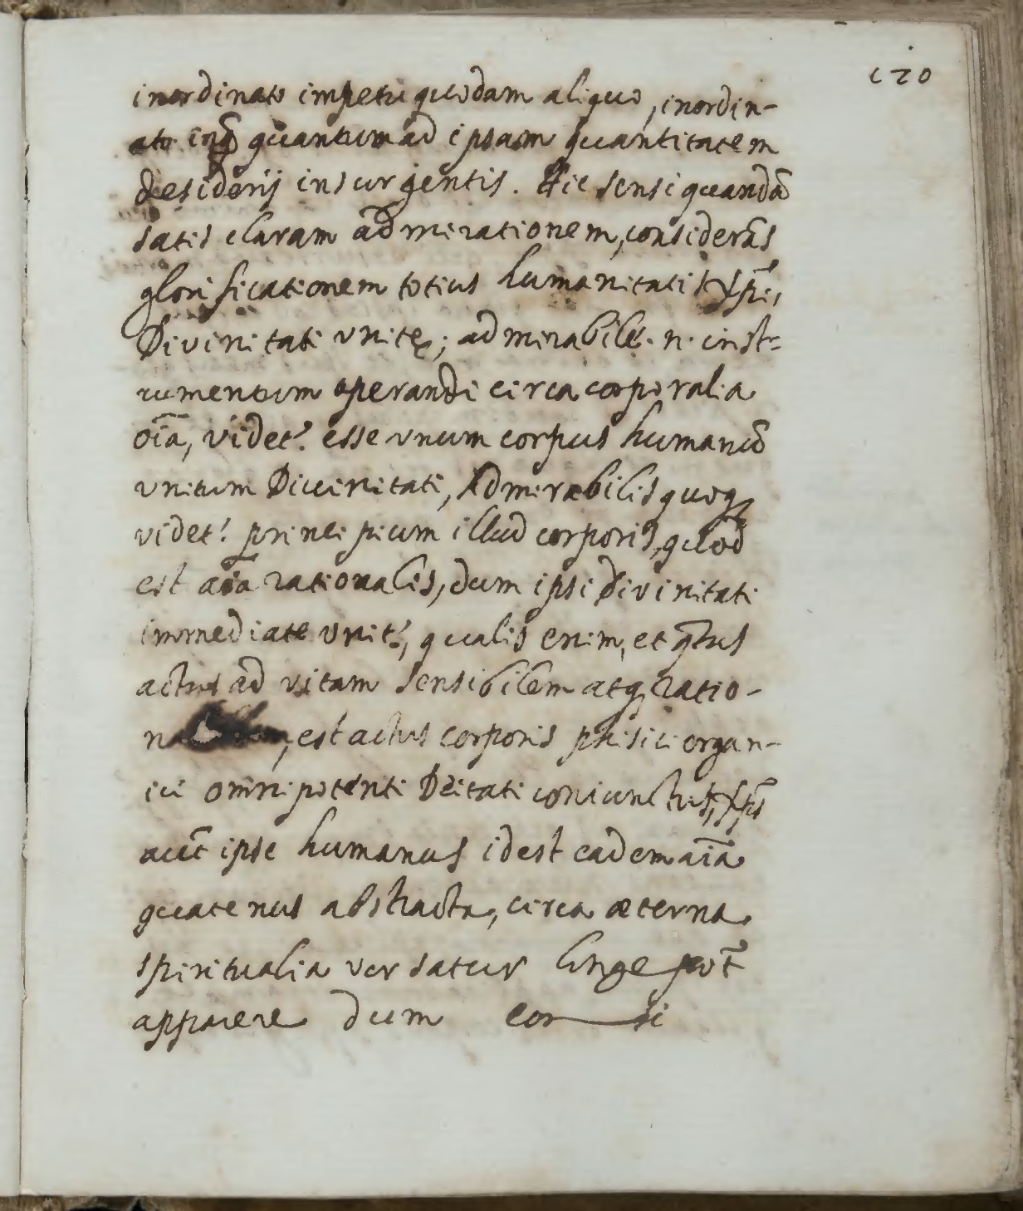 120
inordinato impetu quodam aliquo, inordin-
ato inq̃ quantum ad ipsam quantitatem
desiderij insurgentis. Hic sensi quandã
satis claram admirationem, considerãs
glorificationem totius humanitatis Xp̃i,
Divinitati vnitę; admirabile. n. inst=
rumentum operandi circa corporalia
oĩa, videt.' esse vnum corpus humanũ
vnitum Divinitati, Admirabilis quoq
videt.' principium illud corporis, quod
est aĩa rationalis, dum ipsi Divinitati
immediate vnit.', qualis enim, et q̃tus
actus ad vitam sensibilem atq ratio-
est actus corporis phisici organ-
ici omnipotenti Deitati coniunctus, Xp̃s
aut̃ ipse humanus idest eadem aĩa
quatenus abstracta, circa æterna
spiritualia versatur longe pot̃
apparere dum con si